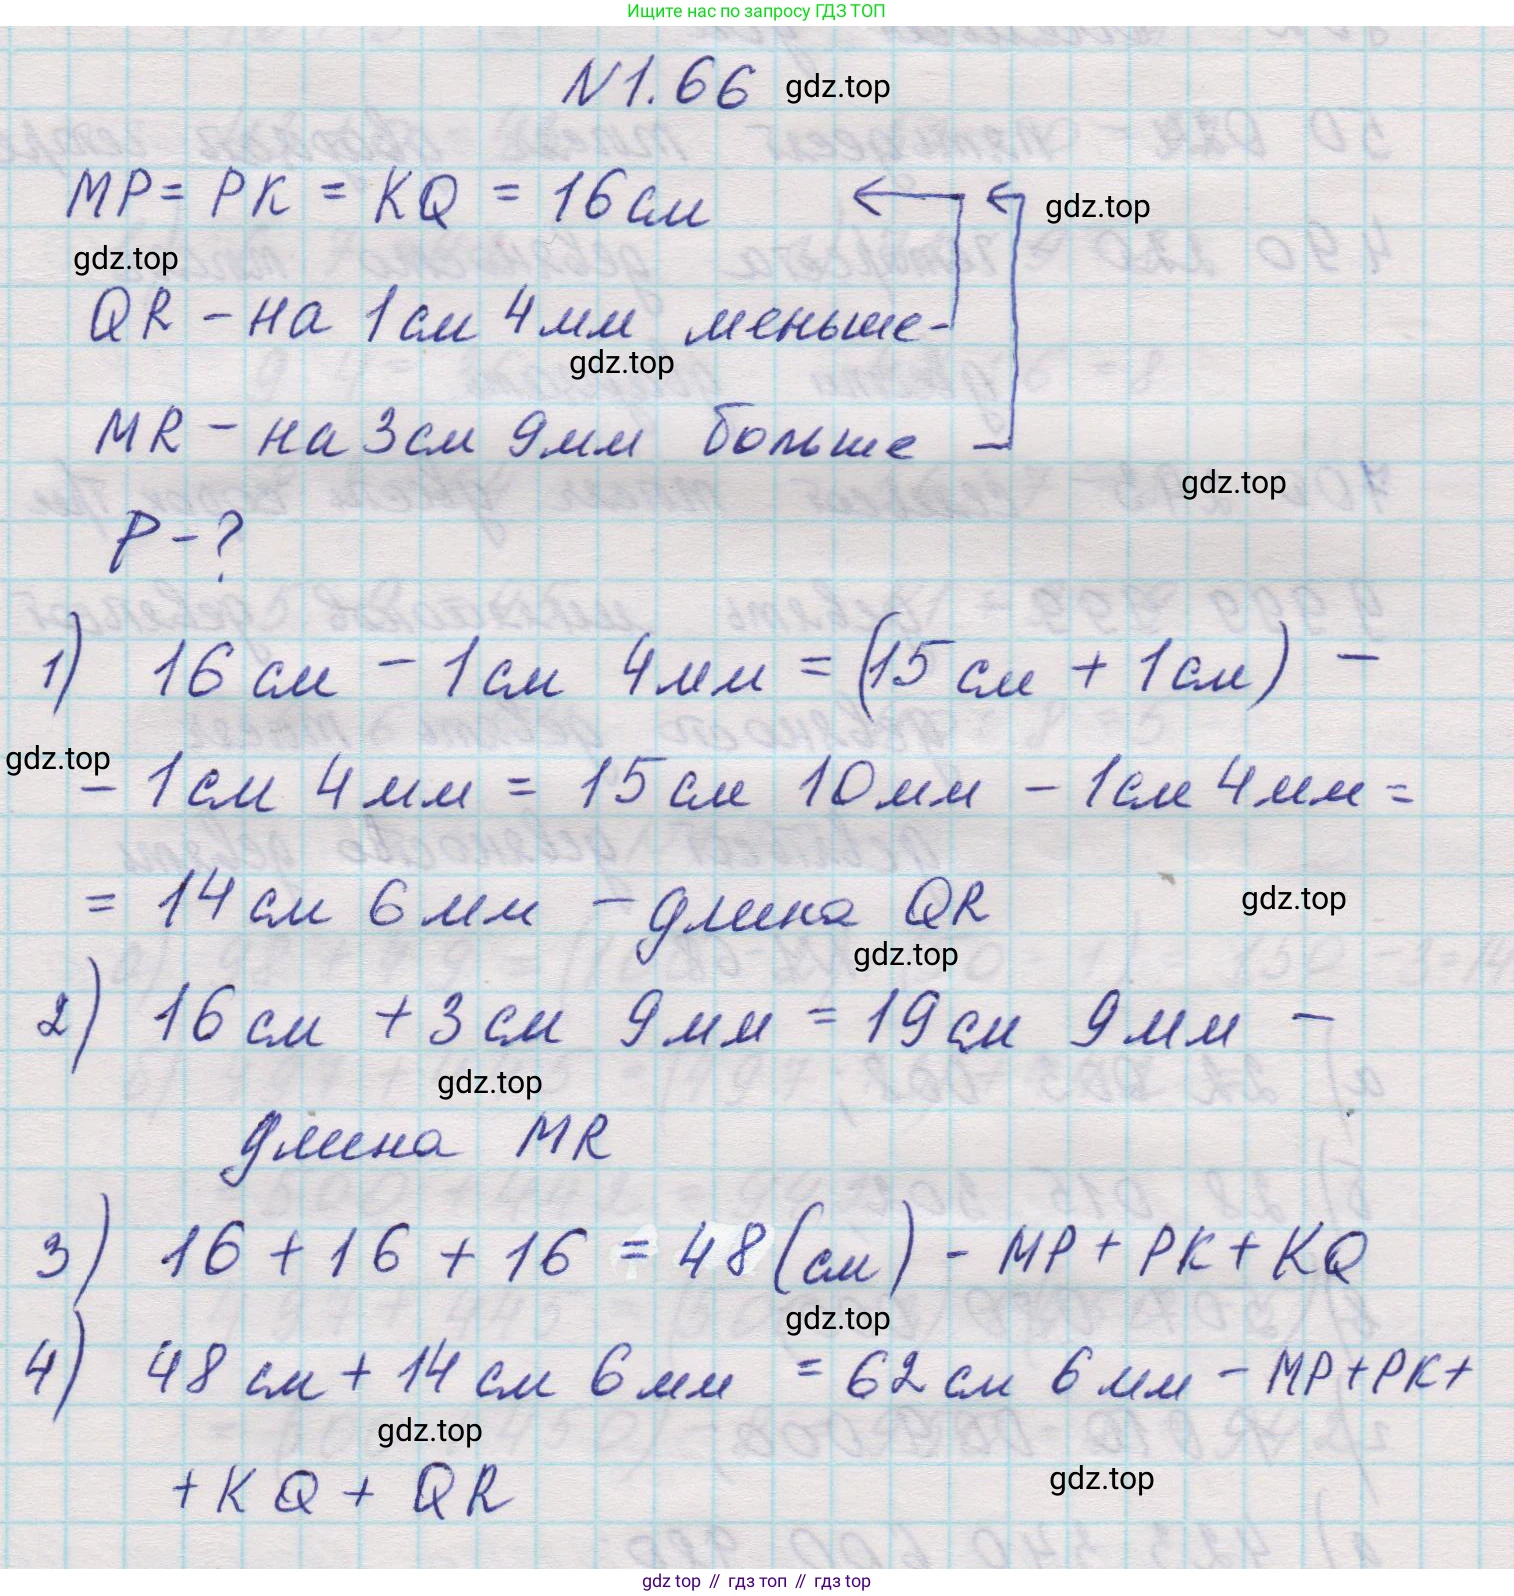 Ищите нас по запросу ГДЗ ТОП
N1.66 gdz.top
MP = PK = KQ = 16 см
gdz.top
gdz.top
QR - на 1 см 4 мм меньше -
gdz.top
MR - на 3 см 9 мм больше -
gdz.top
P - ?
1) 16 см - 1 см 4 мм = (15 см + 1 см) -
gdz.top
- 1 см 4 мм = 15 см 10 мм - 1 см 4 мм =
= 14 см 6 мм - длина QR
gdz.top
gdz.top
2) 16 см + 3 см 9 мм = 19 см 9 мм -
gdz.top
длина MR
3) 16 + 16 + 16 = 48 (см) - MP + PK + KQ
gdz.top
4) 48 см + 14 см 6 мм = 62 см 6 мм - MP + PK +
gdz.top
+ KQ + QR
gdz.top
gdz top // гдз топ // gdz top